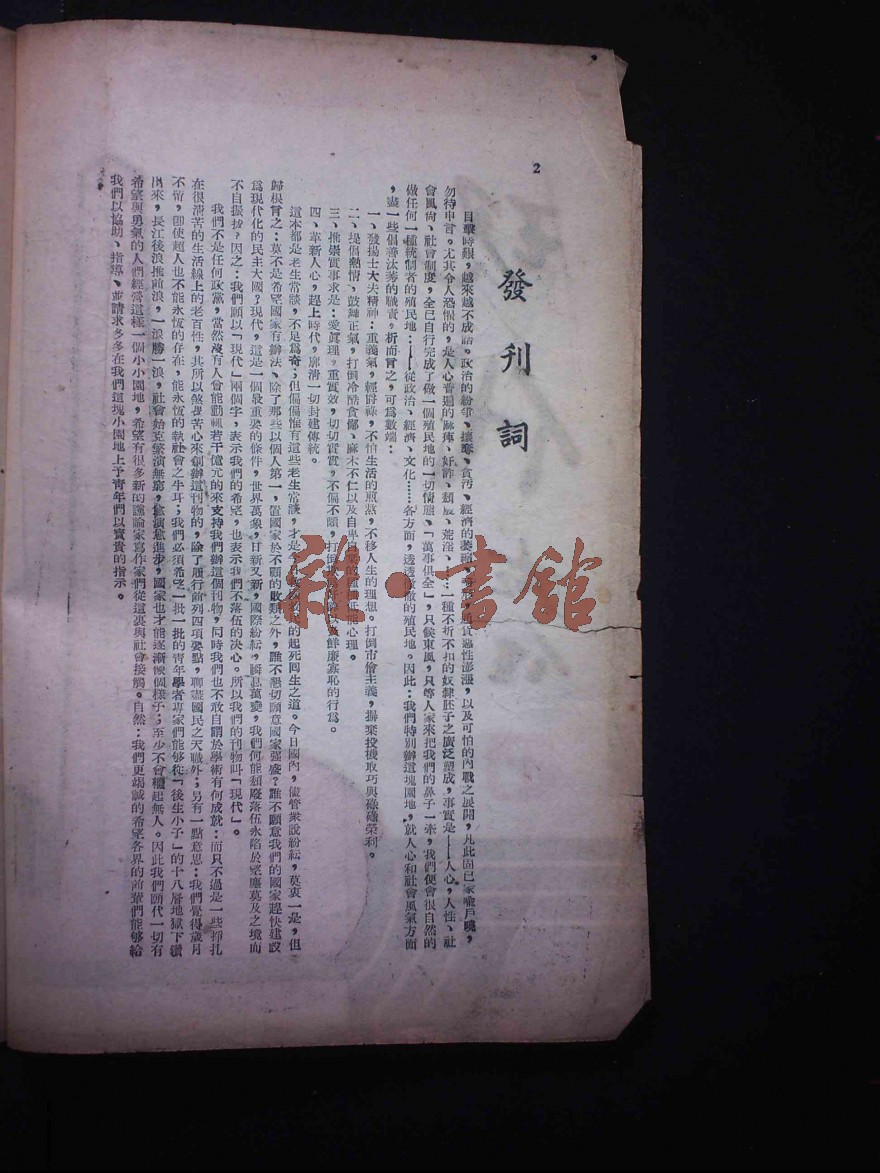 2
發刊詞
目擊時艱，越來越不成話。政治的紛爭、攘奪、貪汚、經濟的萎縮、通貨惡性澎漲，以及可怕的內戰之展開，凡此固已家喩戶曉，
勿待申言。尤其令人恐懼的，是人心普遍的麻痺、奸詐、頹廢、荒淫、一種不折不扣的奴隸胚子之廣泛塑成，事實是——人心，人性、社
會風尚、社會制度，全已自行完成了做一個殖民地的一切情態、「萬事俱全」，只候東風，只等人家來把我們的鼻子一牽，我們便會很自然的
做任何一種統制者的殖民地：——從政治、經濟、文化……各方面，透透澈澈的殖民地。因此：我們特別辦這塊園地，就人心和社會風氣方面
，盡一些倡善汰莠的職責，析而言之，可爲數端：
一、發揚士大夫精神：重義氣，輕爵祿，不怕生活的煎熬，不移人生的理想。打倒市儈主義，摒棄投機取巧與碌碌榮利。
二、提倡熱情、鼓舞正氣，打倒冷酷食鄙、麻木不仁以及自卑自心理。
三、推崇實事求是：愛眞理，重實效，切切實實，不偏不頗，打倒鮮廉寡恥的行爲。
四、革新人心，趕上時代，廓淸一切封建傳統。
這本都是老生常談，不足爲奇；但偏偏惟有這些老生常談，才是今的起死囘生之道。今日國內，儘管衆說紛紜，莫衷一是，但
歸根言之：莫不是希望國家有辦法、除了那些以個人第一，置國家於不顧的敗類之外，誰不懇切願意國家强盛？誰不願意我們的國家趕快建設
爲現代化的民主大國？現代，這是一個最重要的條件，世界萬象，日新又新，國際紛紜，瞬息萬變，我們何能頹廢落伍永陷於望塵莫及之境而
不自振拔？因之：我們願以「現代」兩個字，表示我們的希望，也表示我們不落伍的決心。所以我們的刊物叫「現代」。
我們不是任何政黨，當然沒有人會能動輒若干億元的來支持我們辦這個刊物，同時我們也不敢自詡於學術有何成就：而只不過是一些掙扎
在很淸苦的生活線上的老百性，其所以煞費苦心來創辦這刊物的，除了履行前列四項要點，聊盡國民之天職外；另有一點意思：我們覺得歲月
不悄，卽使超人也不能永恆的存在，能永恆的執社會之牛耳；我們必須希望一批一批的青年學者專家們能够從「後生小子」的十八層地獄下鑽
出來，長江後浪推前浪，一浪勝一浪，社會始克繁演無窮，愈演愈進步，國家也才能逐漸像個樣子；至少不會樓起無人。因此我們願代一切有
希望與勇氣的人們經營這樣一個小小園地，希望有很多新的議論家寫作家們從這裏與社會接觸。自然：我們更竭誠的希望各界的前輩們能够給
我們以協助、指導、並請求多多在我們這塊小園地上予青年們以寶貴的指示。
雜·書館